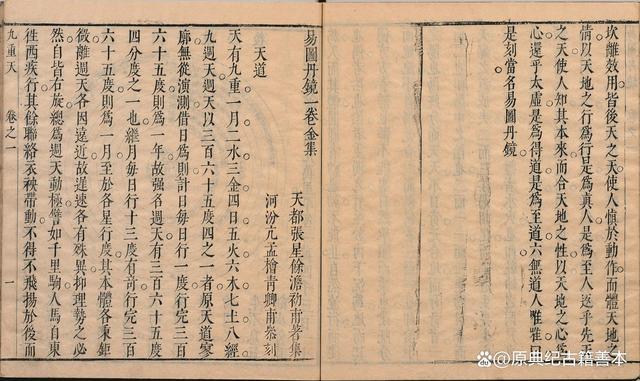 坎離效用皆後天之天使人慎於動作而體天地之
情以天地之行為行是為真人是為至人迄乎先天
之天使人知其本來而合天地之性以天地之心為
心還乎太虛是為得道是為至道六無道人唯唯曰
是刻當名易圖丹鏡
易圖丹鏡一卷金集
天都張星餘澹初甫著集
河汾亢孟檜青卿甫叅刻
天道
天有九重一月二水三金四日五火六木七土八經
九週天週天以三百六十五度四之一者原天道寥
廓無從演測借日為則計日每日行一度行完三百
六十五度則為一年故强名週天有三百六十五度
四分度之一也繼月每日行十三度有奇行完三百
六十五度則為一月至於各星行度其本體各秉鉅
微離週天各因遠近故遲速各有殊異抑理勢之必
然自皆右旋總為週天動極譬如千里駒人馬自東
徃西疾行其餘聯絡衣袂帶動不得不飛揚於後而
九重天 卷之一 一
@原典纪古籍善本